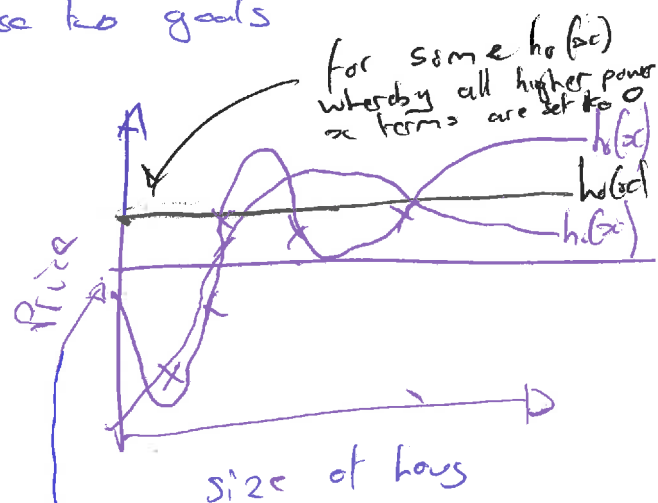 se to goals
for some h₀(x)
whereby all higher power
x terms are set to 0
h₀(x)
h₀(x)
h₀(x)
Price
size of hous